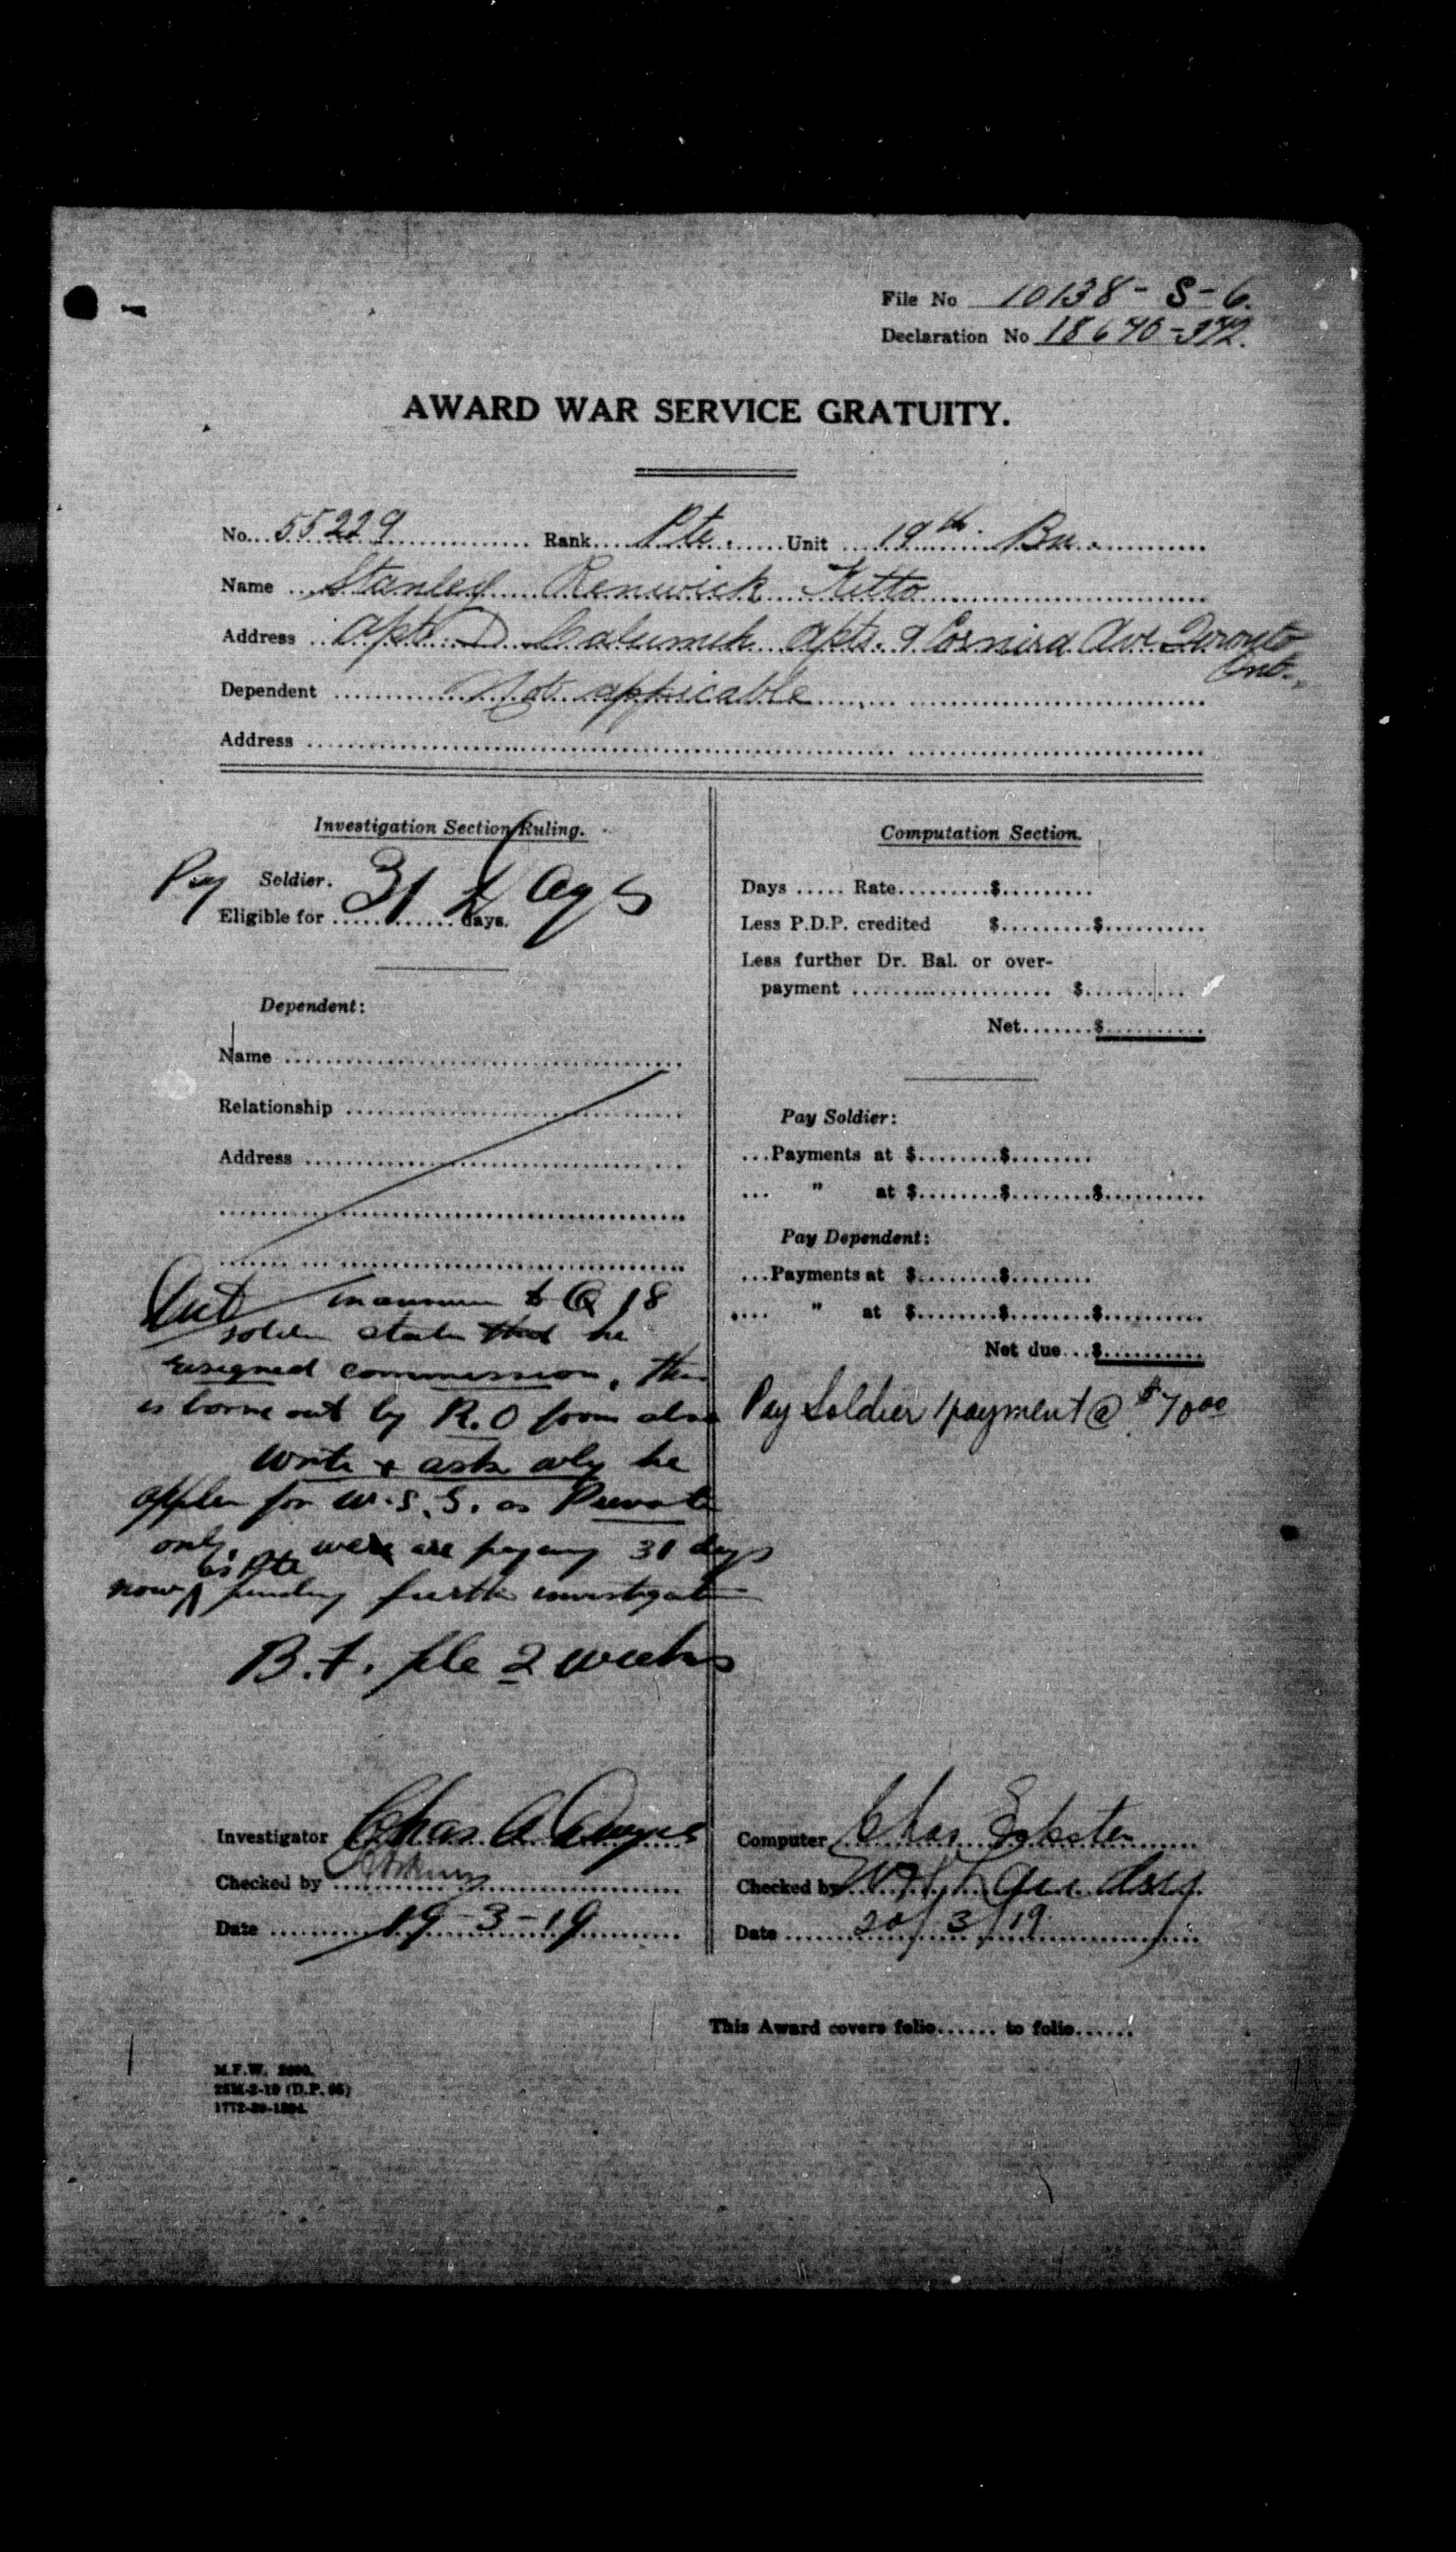 File No 10138-S-6.
Declaration No 18640-342.
AWARD WAR SERVICE GRATUITY.
No. 55229 Rank Pte. Unit 19th. Bn.
Name Stanley Renwick Kitto
Address Apt. D Apts. 9 Ave Toronto
Ont.
Dependent Not appicable
Address
Investigation Section Ruling.
Pay Soldier. 31 days
Eligible for days.
Dependent:
Name
Relationship
Address
to Q 18
soldier states that he
resigned commission, this
is borne out by R.O form also
Write & ask why he
applies for W.S.G. as Private
only. were are paying 31 days
now as Pte pending further investigation
B.F. file 2 weeks
Investigator Chas A
Checked by
Date 19-3-19
Computation Section.
Days ..... Rate.........$.........
Less P.D.P. credited $.........$..........
Less further Dr. Bal. or over-
payment .................... $..........
Net.......$..........
Pay Soldier:
...Payments at $........$........
... " at $........$........$..........
Pay Dependent:
...Payments at $........$........
.... " at $........$........$..........
Net due...$..........
Pay Soldier 1 payment @ $70.00
Computer Chas
Checked by
Date 20/3/19.
This Award covers folio...... to folio......
M.F.W.
25M-2-19 (D.P. 66)